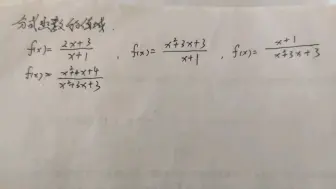 分式函数的值域.
f(x)= (2x+3)/(x+1) , f(x)= (x²+3x+3)/(x+1) , f(x)= (x+1)/(x²+3x+3)
f(x)= (x²+x+4)/(x²+2x+3)